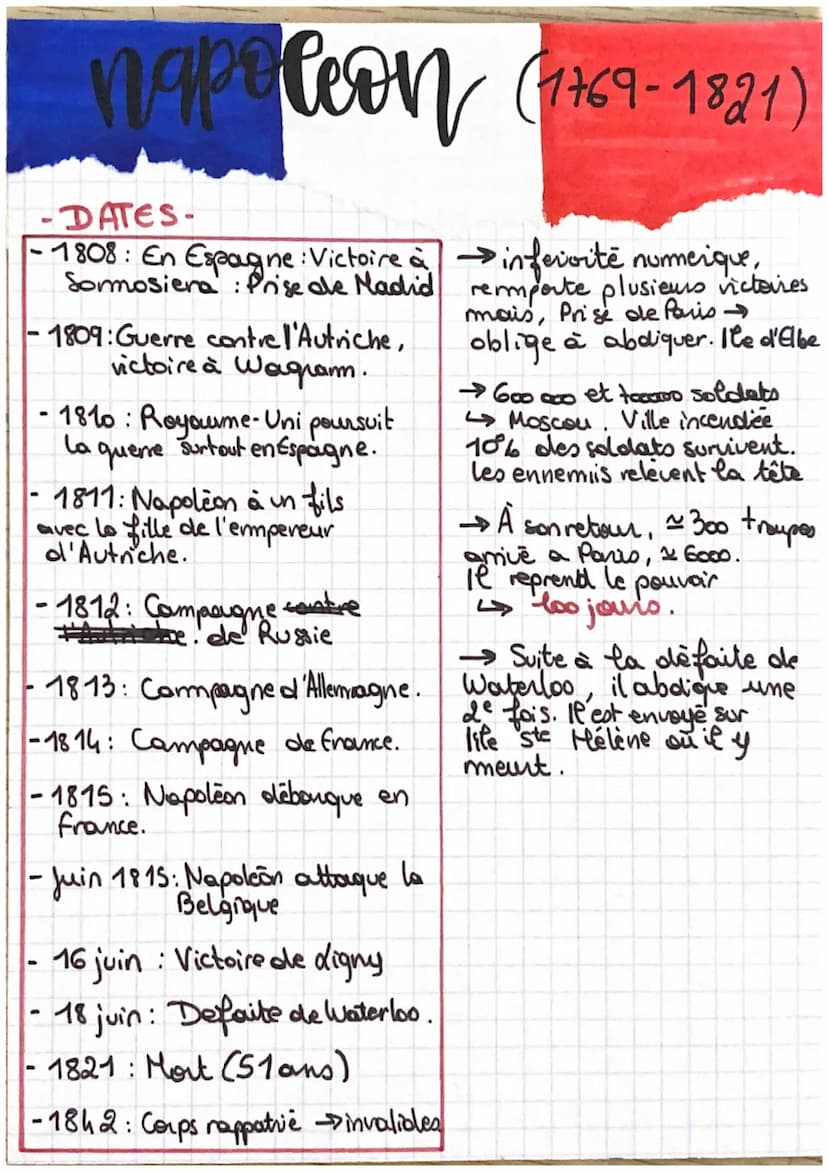 napoleon (1769-1821)
-DATES-
- 1808: En Espagne: Victoire à
Sormosiera : Prise de Madrid
- 1809: Guerre contre l'Autriche,
victoire à Wagram.
- 1810: Royaume-Uni poursuit
la guerre surtout en Espagne.
- 1811: Napoléon à un fils
avec la fille de l'empereur
d'Autriche.
- 1812: Campagne contre
l'Autriche. de Russie
- 1813: Campagne d'Allemagne.
- 1814: Campagne de France.
- 1815: Napoléon débarque en
France.
- Juin 1815: Napoléon attaque la
Belgique
- 16 juin : Victoire de Ligny
- 18 juin: Defaite de Waterloo.
- 1821 : Mort (51 ans)
- 1842: Corps rappatrié → invalides
→ inferiorité numerique,
remporte plusieurs victoires
mais, Prise de Paris →
oblige à abdiquer. Ile d'Elbe
→ 600 000 et 700000 soldats
↳ Moscou. Ville incendiée
10% des soldats survivent.
Les ennemis relèvent la tête
→ À son retour, ≃ 300 troupes
arrivé a Paris, ≃ 6000.
Il reprend le pouvoir
↳ 100 jours.
→ Suite à la défaite de
Waterloo, il abdique une
2e fois. Il est envoyé sur
l'ile Ste Hélène où il y
meurt.